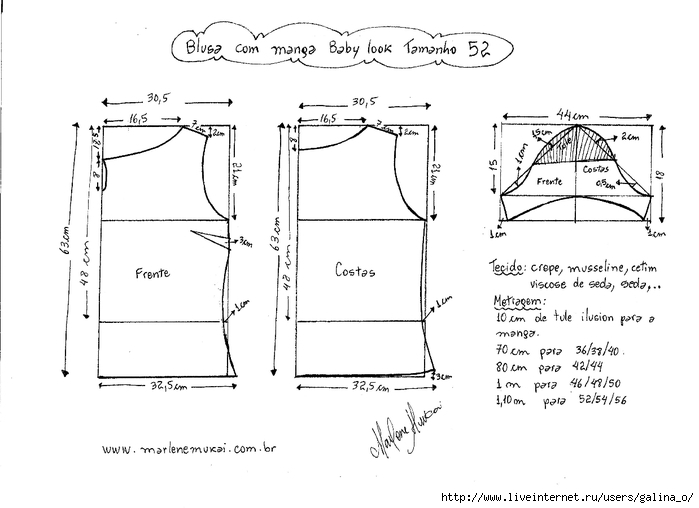 Blusa com manga Baby look Tamanho 52
30,5
16,5
7cm
2cm
8
21cm
63cm
48 cm
3cm
Frente
1cm
32,5cm
30,5
16,5
7cm
2cm
8
21cm
63cm
48 cm
Costas
1cm
3cm
32,5cm
44cm
15cm
Tule
2cm
1cm
15
18
Costas
Frente
0,5cm
1cm
1cm
Tecido: crepe, musseline, cetim
viscose de seda, seda,..
Metragem:
10 cm de tule ilusion para a
manga.
70 cm para 36/38/40.
80 cm para 42/44
1 m para 46/48/50
1,10 m para 52/54/56
www.marlenemukai.com.br
Marlene Mukai
http://www.liveinternet.ru/users/galina_o/